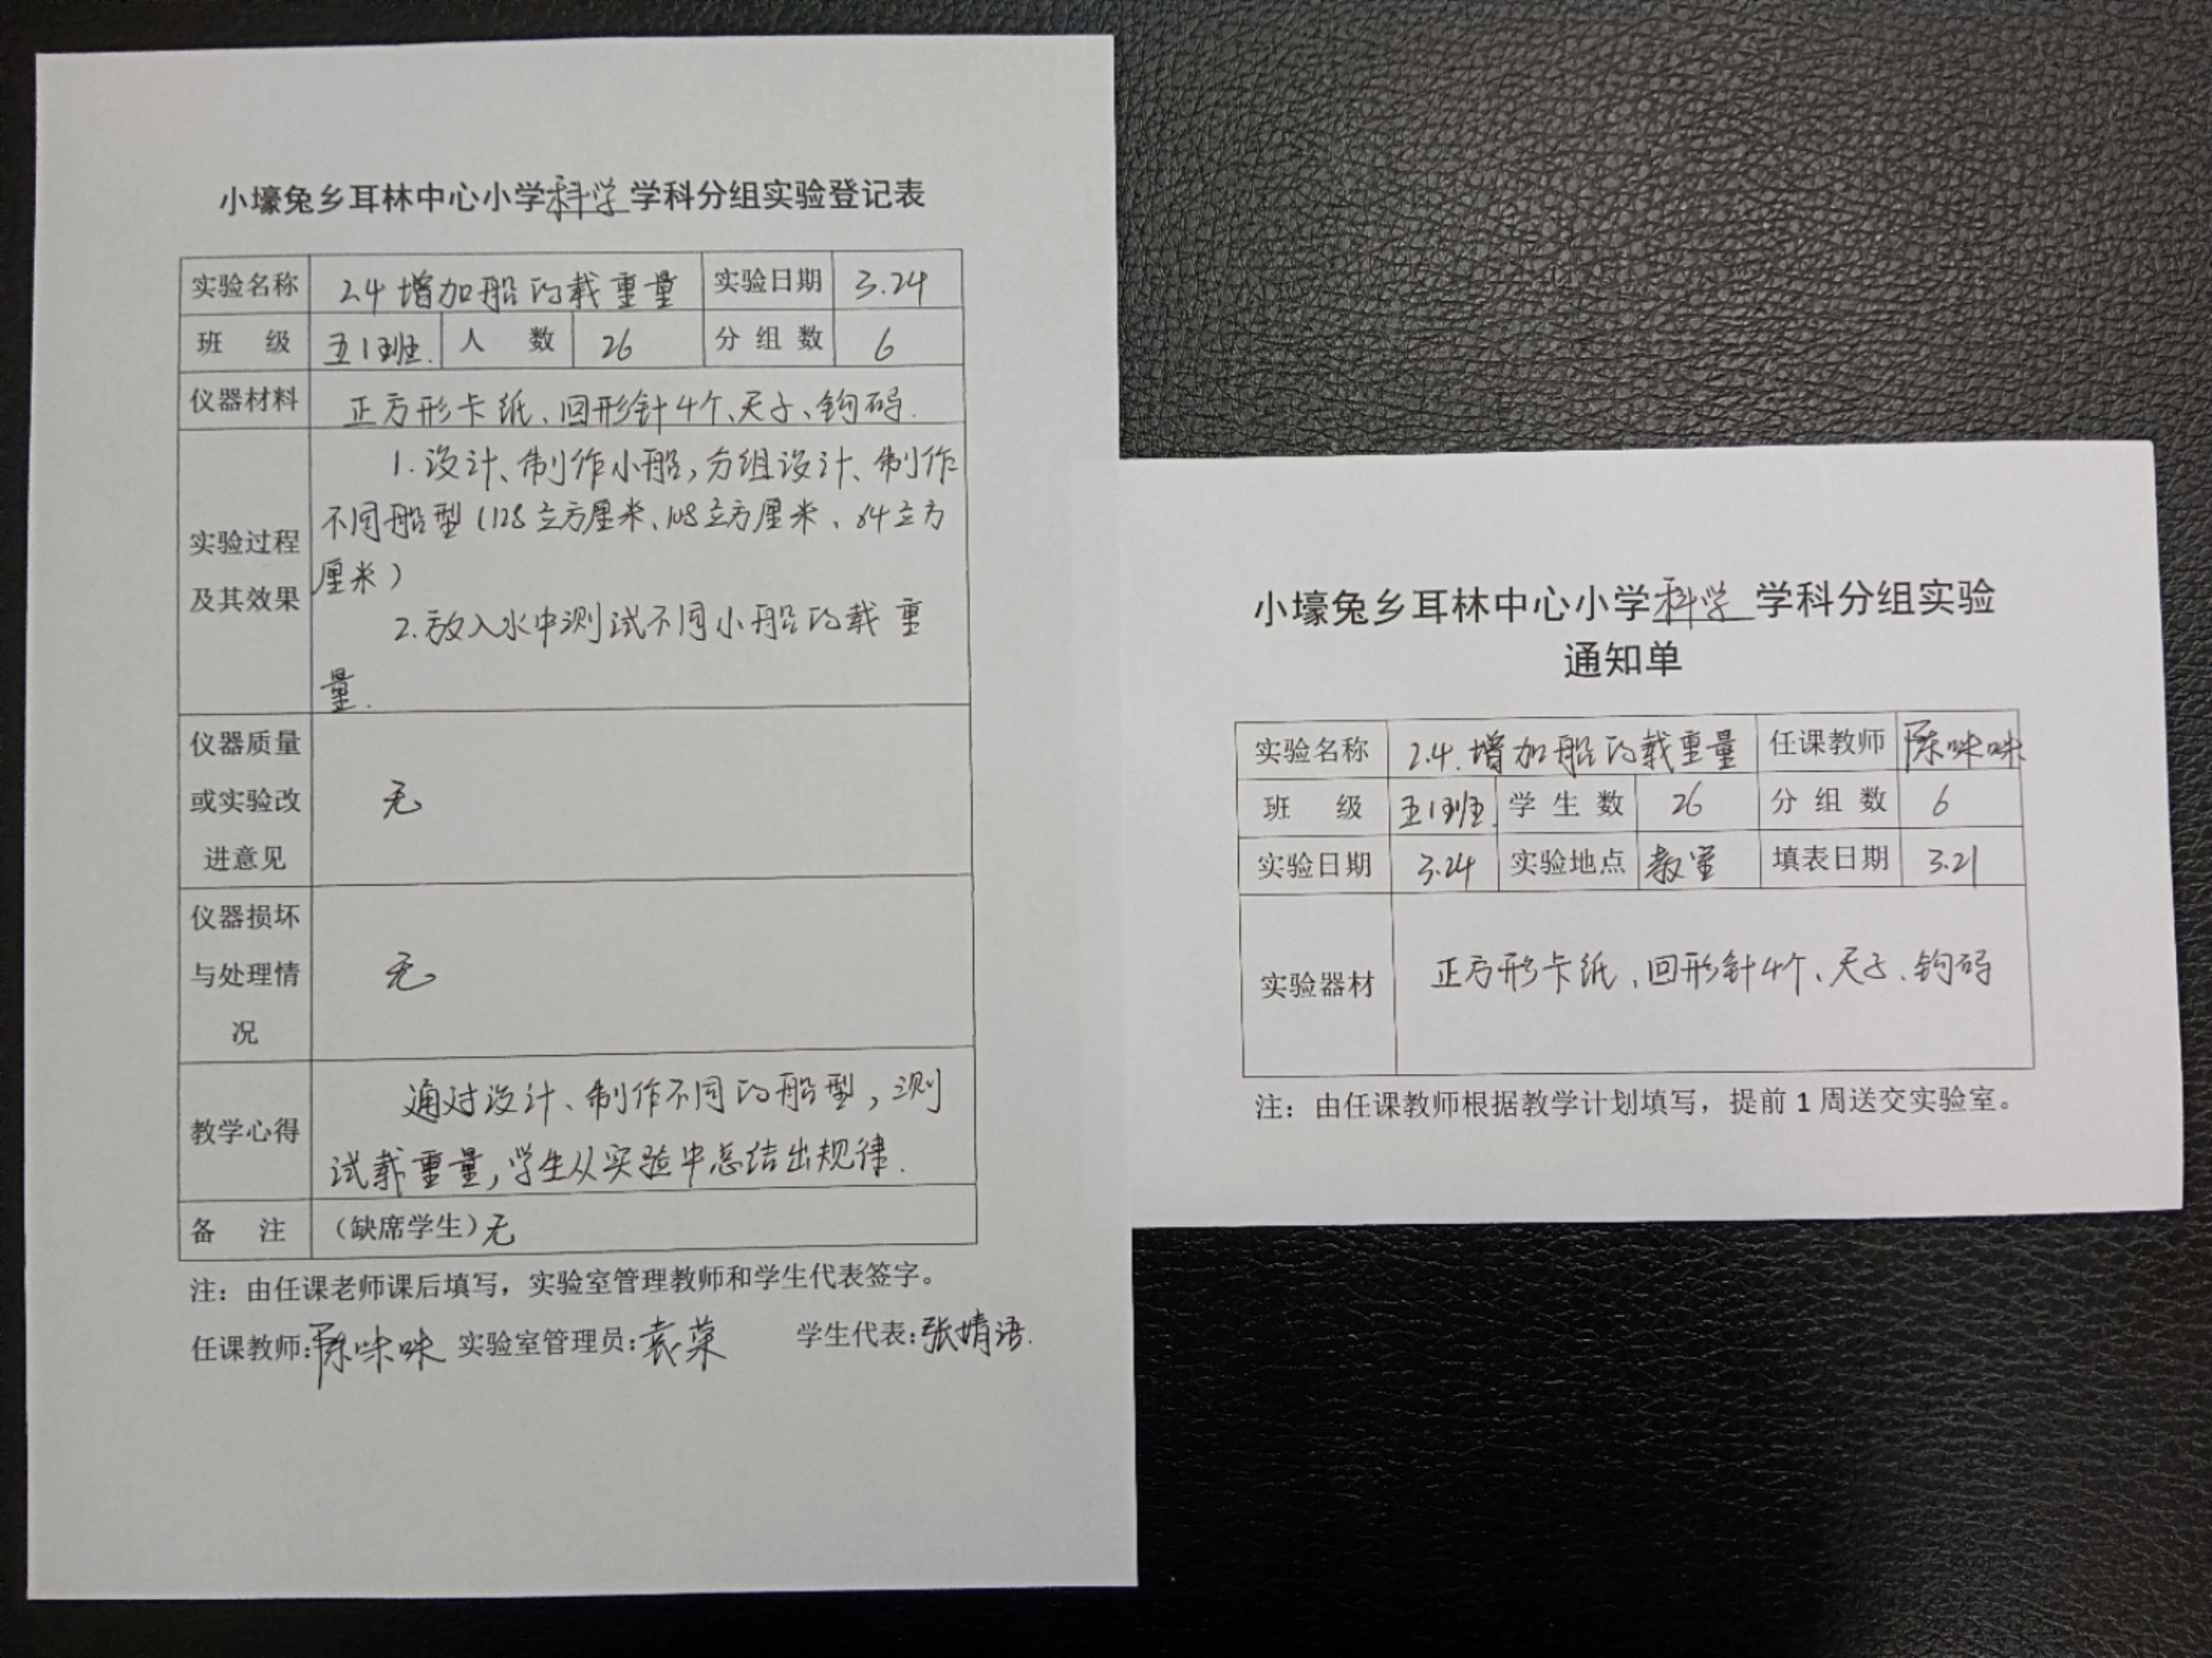 小壕兔乡耳林中心小学科学学科分组实验登记表
实验名称 2.4增加船的载重量 实验日期 3.24
班 级 五1班. 人 数 26 分组数 6
仪器材料 正方形卡纸、回形针4个、天子、钩码.
实验过程及其效果
1.设计、制作小船,分组设计、制作
不同船型(128立方厘米、108立方厘米、64立方
厘米)
2.放入水中测试不同小船的载重
量.
仪器质量
或实验改
进意见
无
仪器损坏
与处理情
况
无
教学心得
通过设计、制作不同的船型,测
试载重量,学生从实验中总结出规律.
备 注 (缺席学生)无
注:由任课老师课后填写,实验室管理教师和学生代表签字。
任课教师:陈咪咪 实验室管理员:袁荣 学生代表:张婧语.
小壕兔乡耳林中心小学科学学科分组实验
通知单
实验名称 2.4.增加船的载重量 任课教师 陈咪咪
班 级 五1班. 学生数 26 分组数 6
实验日期 3.24 实验地点 教室 填表日期 3.21
实验器材 正方形卡纸、回形针4个、天子、钩码
注:由任课教师根据教学计划填写,提前1周送交实验室。